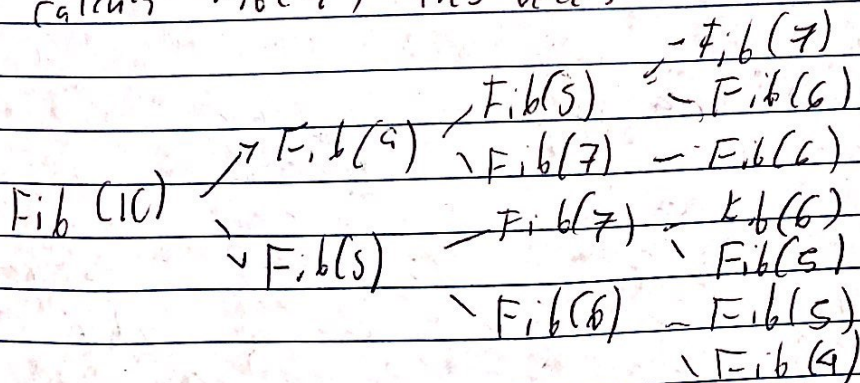 Fib(7)
Fib(8) Fib(6)
Fib(9) Fib(7) - Fib(6)
Fib(10) Fib(7) Fib(6)
Fib(8) Fib(5)
Fib(6) - Fib(5)
Fib(4)